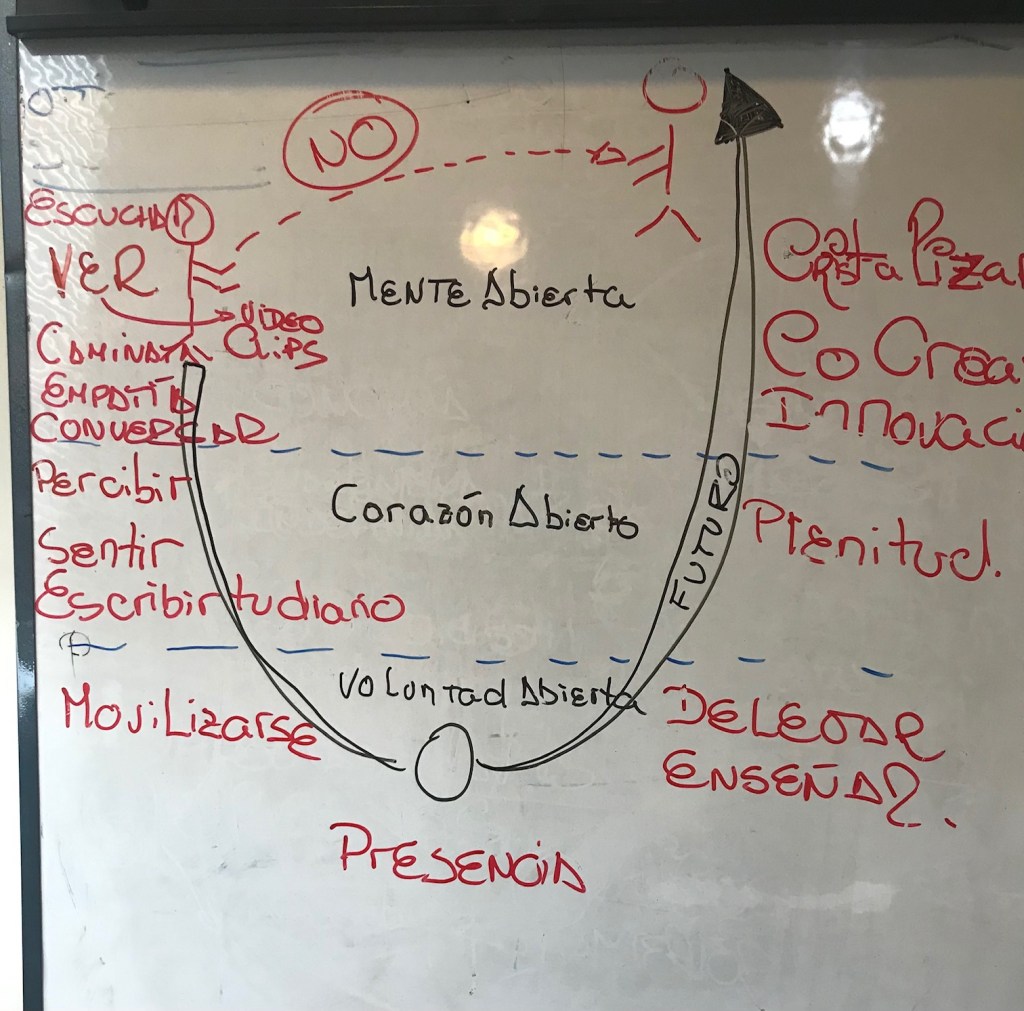 NO
ESCUCHAR
VER
VIDEO
CLIPS
MENTE Abierta
CAMINATA
EMPATÍA
CONVERSAR
CristaLizar
Co Crea
Innovaci
Percibir
Corazón Abierto
FUTURO
Plenitud.
Sentir
Escribir tu diario
VoLuntad Abierta
MoviLizarse
DELEGAR
ENSEÑAR.
PrESENCIA